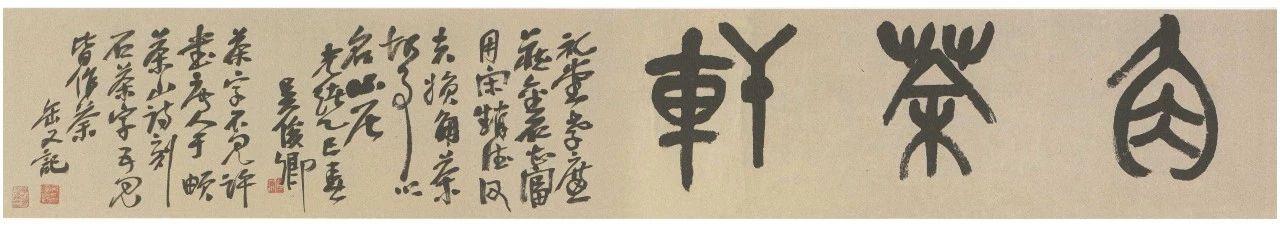 角茶軒
礼堂孝廉
藏金石甚富
用宋趙德父
夫婦角茶
故事以
名山居
光緒乙巳春
吳俊卿
茶字不見許
書唐人于頔
茶山詩刻
石茶字五見
皆作茶
缶又記